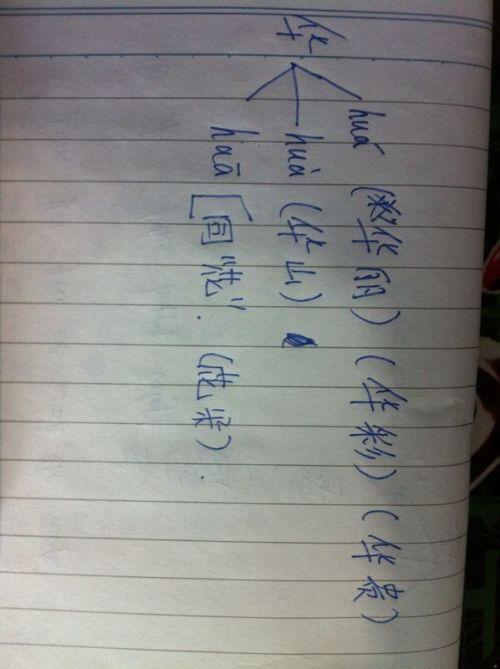 华
huá (华丽) (华彩) (华贵)
huà (华山)
huā [同"花". (花采).